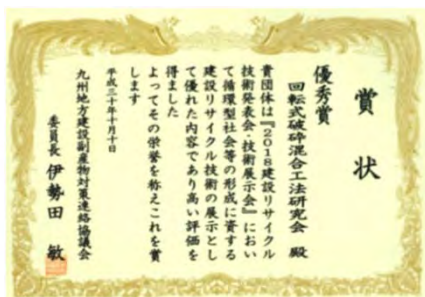 賞状
優秀賞
回転式破砕混合工法研究会 殿
貴団体は『2018建設リサイクル
技術発表会・技術展示会』におい
て循環型社会等の形成に資する
建設リサイクル技術の展示とし
て優れた内容であり高い評価を
得ました
よってその栄誉を称えこれを賞
します
平成三十年十月十日
九州地方建設副産物対策連絡協議会
委員長 伊勢田 敏